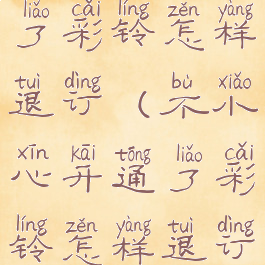 liǎo cǎi líng zěn yàng
了彩铃怎样
tuì dìng bù xiǎo
退订（不小
xīn kāi tōng liǎo cǎi
心开通了彩
líng zěn yàng tuì dìng
铃怎样退订